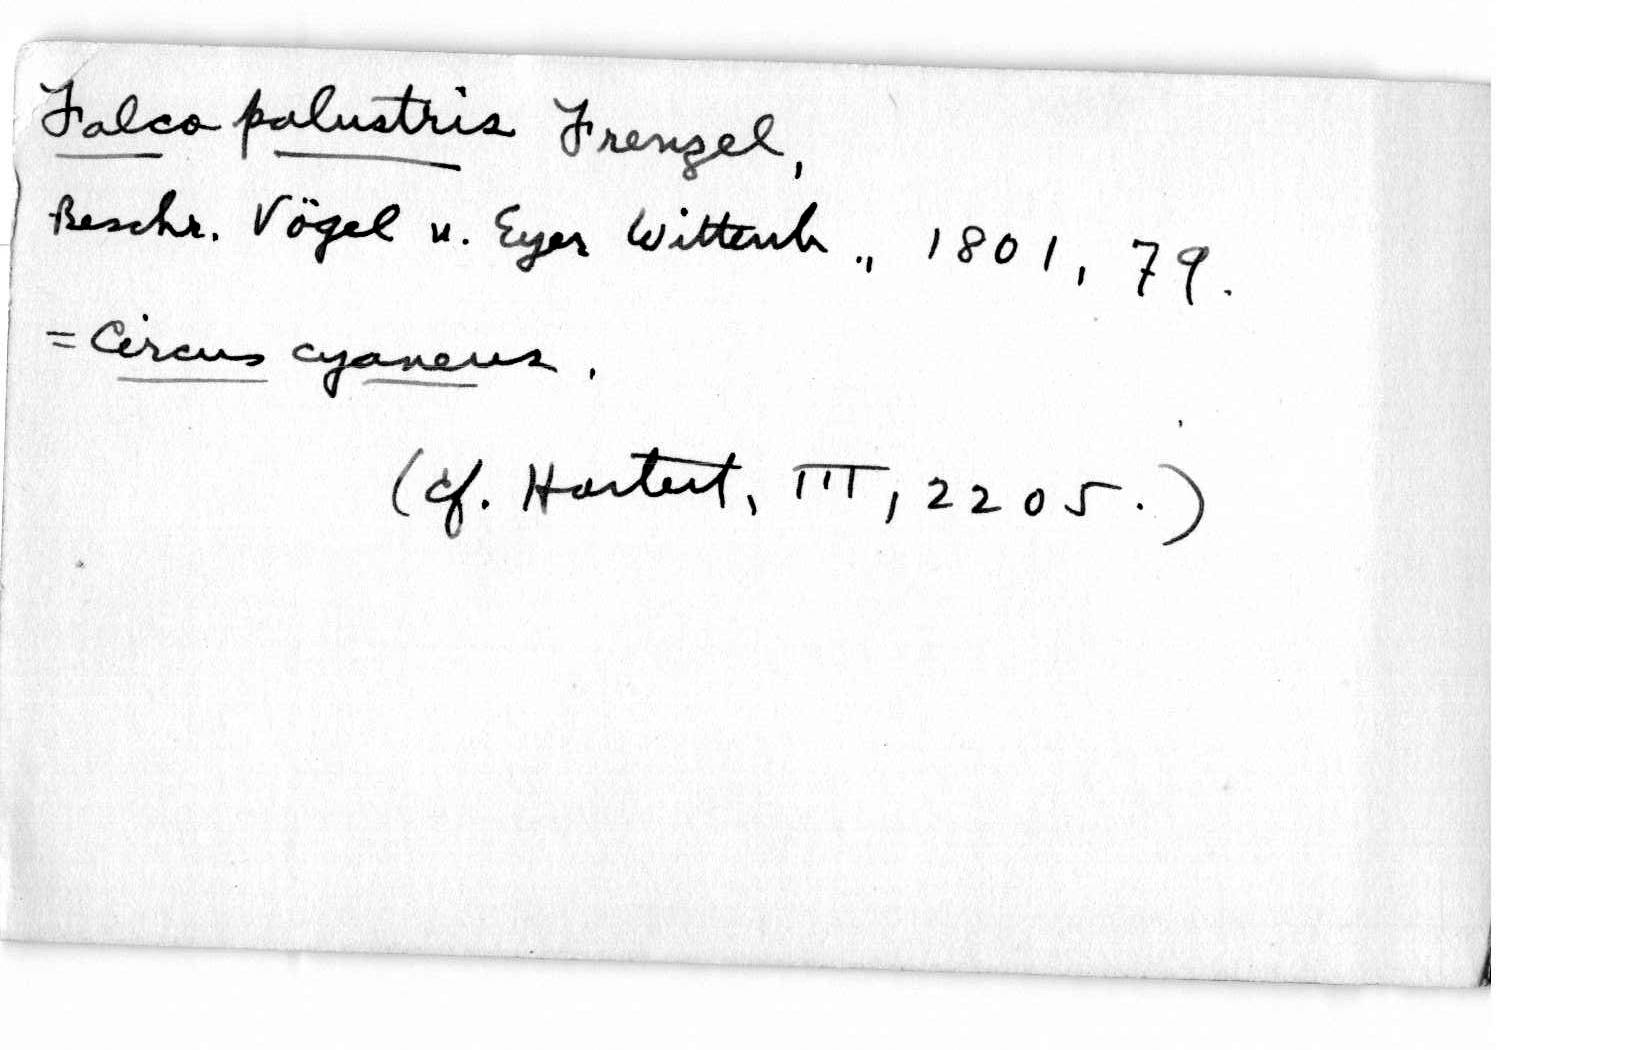 Falco palustris Frenzel,
Beschr. Vögel u. Eyer Wittenb., 1801, 79.
= Circus cyaneus.
(cf. Hartert, III, 2205.)